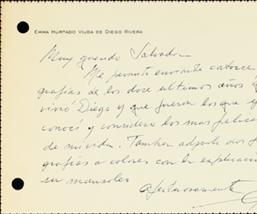 EMMA HURTADO VIUDA DE DIEGO RIVERA
Muy querido Salvador
Me permito enviarte catorce
grafias de los doce ultimos años q
vivió Diego y que fueron los que y
conocí y considero los mas felices
de mi vida. Tambien adjunto dos f
grafias a colores con la explicacion
en manuales
Afectuosamente